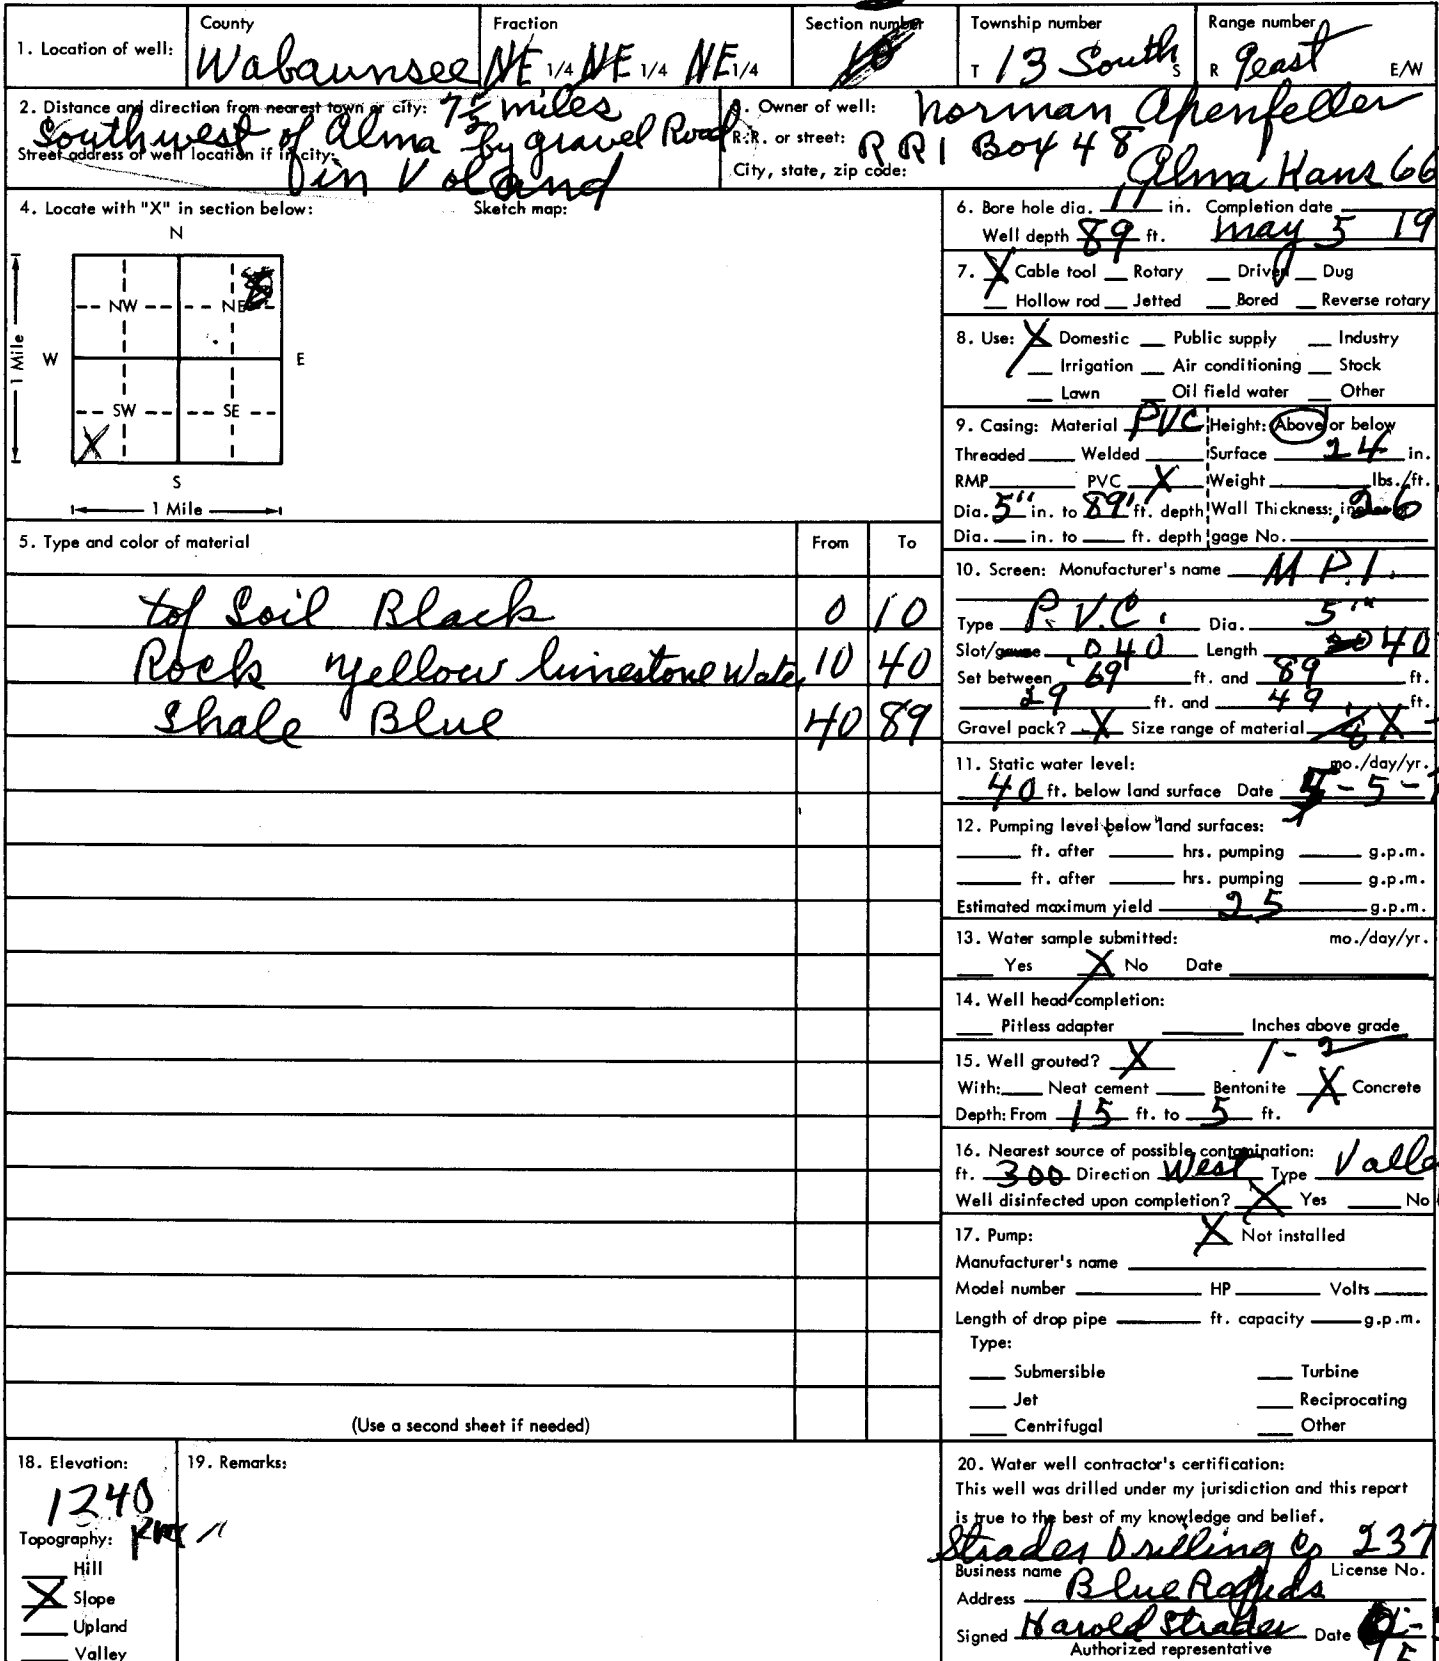 County Fraction Section number Township number Range number
1. Location of well: Wabaunsee NE 1/4 NE 1/4 NE 1/4 10 T 13 South S R 9east E/W
2. Distance and direction from nearest town or city: 7½ miles
Southwest of Alma by gravel Road
Street address of well location if in city:
in Volland
3. Owner of well: Norman Apenfeller
R.R. or street: RR1 Box 48
City, state, zip code: Alma Kans 66
4. Locate with "X" in section below: Sketch map:
N
NW NE
W E
1 Mile
SW SE
X
S
1 Mile
5. Type and color of material From To
top Soil Black 0 10
Rock yellow limestone Water 10 40
Shale Blue 40 89
(Use a second sheet if needed)
6. Bore hole dia. 11 in. Completion date
Well depth 89 ft. may 5 19
7. X Cable tool Rotary Driven Dug
Hollow rod Jetted Bored Reverse rotary
8. Use: X Domestic Public supply Industry
Irrigation Air conditioning Stock
Lawn Oil field water Other
9. Casing: Material PVC Height: Above or below
Threaded Welded Surface 24 in.
RMP PVC X Weight lbs./ft.
Dia. 5" in. to 89' ft. depth Wall Thickness: inches or .26
Dia. in. to ft. depth gage No.
10. Screen: Manufacturer's name M.P.I.
Type P.V.C. Dia. 5"
Slot/gauze .040 Length 40
Set between 69 ft. and 89 ft.
29 ft. and 49 ft.
Gravel pack? X Size range of material X
11. Static water level: mo./day/yr.
40 ft. below land surface Date 5-5-
12. Pumping level below land surfaces:
ft. after hrs. pumping g.p.m.
ft. after hrs. pumping g.p.m.
Estimated maximum yield 25 g.p.m.
13. Water sample submitted: mo./day/yr.
Yes X No Date
14. Well head completion:
Pitless adapter Inches above grade
15. Well grouted? X 1-2
With: Neat cement Bentonite X Concrete
Depth: From 15 ft. to 5 ft.
16. Nearest source of possible contamination:
ft. 300 Direction West Type Valle
Well disinfected upon completion? X Yes No
17. Pump: X Not installed
Manufacturer's name
Model number HP Volts
Length of drop pipe ft. capacity g.p.m.
Type:
Submersible Turbine
Jet Reciprocating
Centrifugal Other
18. Elevation:
1240
Topography:
Hill
X Slope
Upland
Valley
19. Remarks:
20. Water well contractor's certification:
This well was drilled under my jurisdiction and this report
is true to the best of my knowledge and belief.
Strader Drilling Co 237
Business name License No.
Address Blue Rapids
Signed Harold Strader Date
Authorized representative